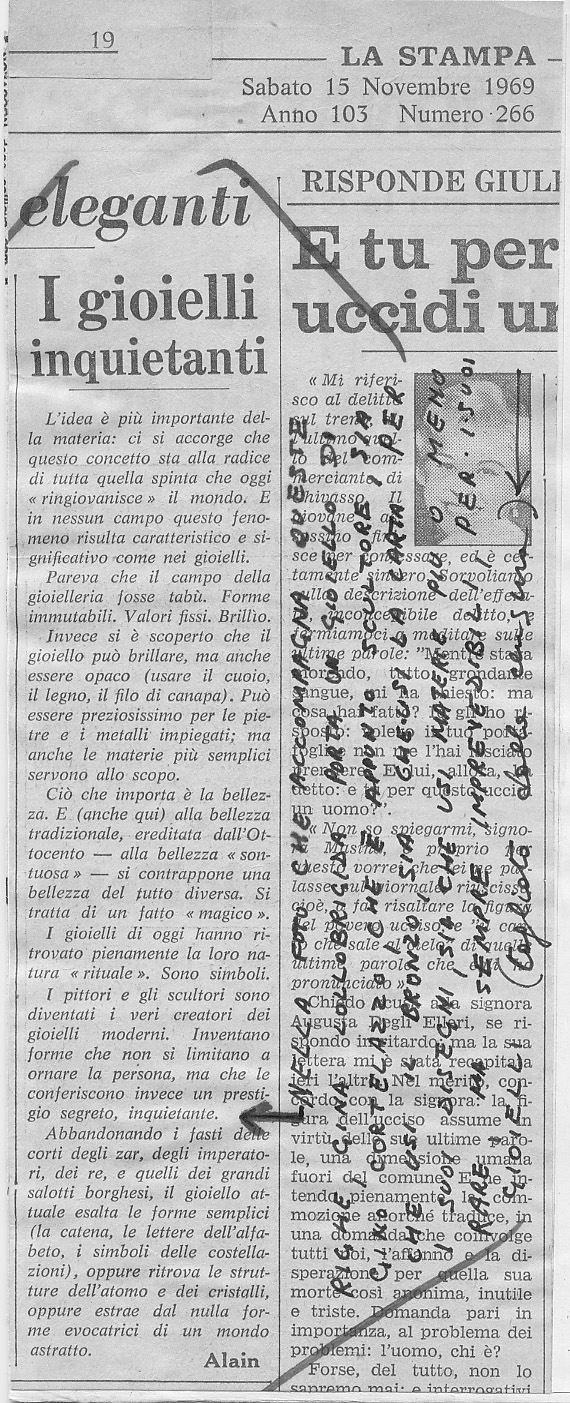 19
LA STAMPA
Sabato 15 Novembre 1969
Anno 103 Numero 266
eleganti
I gioielli
inquietanti
L'idea è più importante del-
la materia: ci si accorge che
questo concetto sta alla radice
di tutta quella spinta che oggi
«ringiovanisce» il mondo. E
in nessun campo questo feno-
meno risulta caratteristico e si-
gnificativo come nei gioielli.
Pareva che il campo della
gioielleria fosse tabù. Forme
immutabili. Valori fissi. Brillìo.
Invece si è scoperto che il
gioiello può brillare, ma anche
essere opaco (usare il cuoio,
il legno, il filo di canapa). Può
essere preziosissimo per le pie-
tre e i metalli impiegati; ma
anche le materie più semplici
servono allo scopo.
Ciò che importa è la bellez-
za. E (anche qui) alla bellezza
tradizionale, ereditata dall'Ot-
tocento — alla bellezza «son-
tuosa» — si contrappone una
bellezza del tutto diversa. Si
tratta di un fatto «magico».
I gioielli di oggi hanno ri-
trovato pienamente la loro na-
tura «rituale». Sono simboli.
I pittori e gli scultori sono
diventati i veri creatori dei
gioielli moderni. Inventano
forme che non si limitano a
ornare la persona, ma che le
conferiscono invece un presti-
gio segreto, inquietante.
Abbandonando i fasti delle
corti degli zar, degli imperato-
ri, dei re, e quelli dei grandi
salotti borghesi, il gioiello at-
tuale esalta le forme semplici
(la catena, le lettere dell'alfa-
beto, i simboli delle costella-
zioni), oppure ritrova le strut-
ture dell'atomo e dei cristalli,
oppure estrae dal nulla for-
me evocatrici di un mondo
astratto.
Alain
NELLA FOTO CHE ACCOMPAGNA QUESTE
RIGHE, GINA LOLLOBRIGIDA PORTA UN GIOIELLO DI
GINO CORTELAZZO, CHE È APPUNTO SCULTORE, SIA
CHE USI IL BRONZO, SIA USI LA CARTA PER
I SUOI DISEGNI, SIA CHE USI MATERIE PIÙ O MENO
RARE MA SEMPRE IMPREVEDIBILI PER I SUOI
GIOIELLI
RISPONDE GIULI
E tu per
uccidi un
«Mi riferi-
sco al delitto
sul treno,
commerciante di
Chivasso. Il
sce per confessare, ed è cer-
tamente sincero. Sorvoliamo
sulla descrizione dell'effera-
to, incon­cepibile delitto, e
fermiamoci a meditare sulle
ultime parole: "Mentre stava
morendo, tutto grondante
sangue, mi ha chiesto: ma
cosa hai fatto? E gli ho ri-
sposto: il tuo porta-
foglie non me l'hai lasciato
prendere. E lui, allora, ha
detto: e tu per questo uccidi
un uomo?".
«Non so spiegarmi, signo-
proprio per
questo vorrei che lei ne par-
lasse sul giornale, riuscisse
cioè, a far risaltare la figura
del povero ucciso, e
che sale al cielo, di quelle
ultime parole che egli ha
pronunciato».
Chiedo scusa alla signora
Augusta Degli Elleri, se ri-
spondo in ritardo: ma la sua
lettera mi è stata recapitata
ieri l'altro. Nel merito, con-
cordo con la signora: la fi-
gura dell'ucciso assume in
virtù delle sue ultime paro-
le, una dimensione umana
fuori del comune. E ne in-
tendo pienamente la com-
mozione allorché traduce, in
una domanda che coinvolge
tutti noi, l'affanno e la di-
sperazione per quella sua
morte così anonima, inutile
e triste. Domanda pari in
importanza, al problema dei
problemi: l'uomo, chi è?
Forse, del tutto, non lo
sapremo mai: e interrogativi